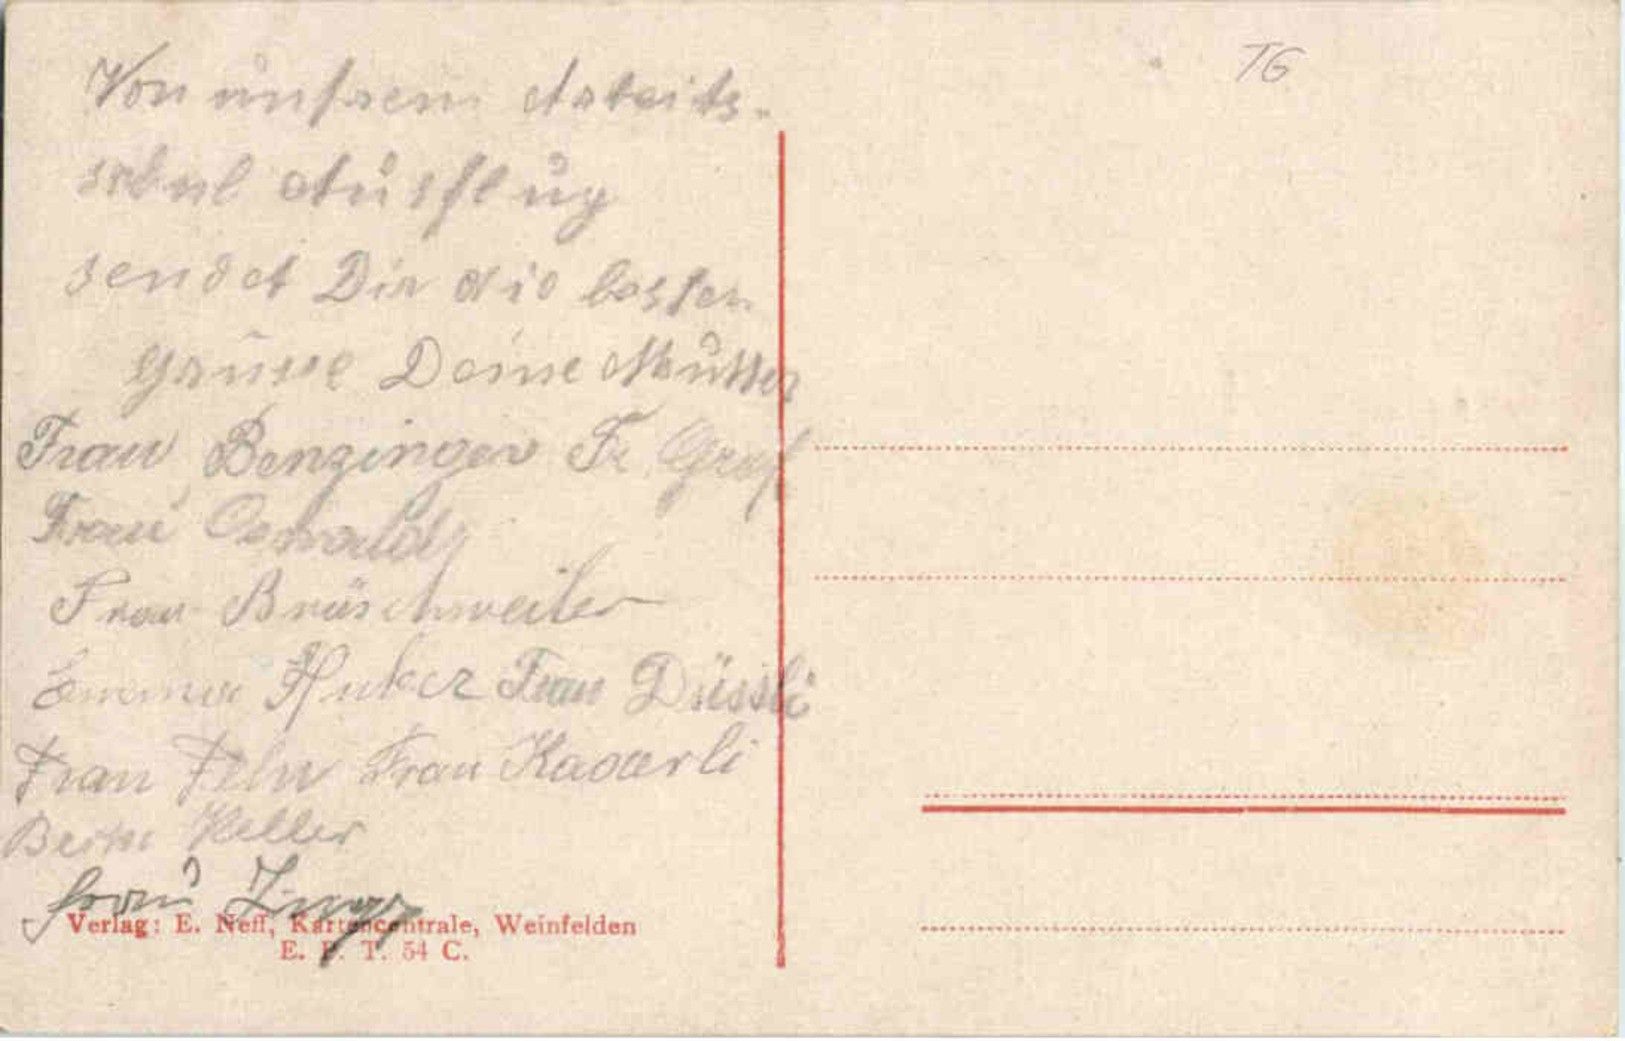 Von unsrem Arbeits-
schul Ausflug
sendet Dir die besten
Grüsse Deine Mutter
Frau Benzinger Fr. Graf
Frau Oswald
Frau Brüschweiler
Emma Huber Frau Düssli
Frau Fehr Frau
Keller
Frau
Verlag: E. Neff, Kartencentrale, Weinfelden
E. P. T. 54 C.
TG